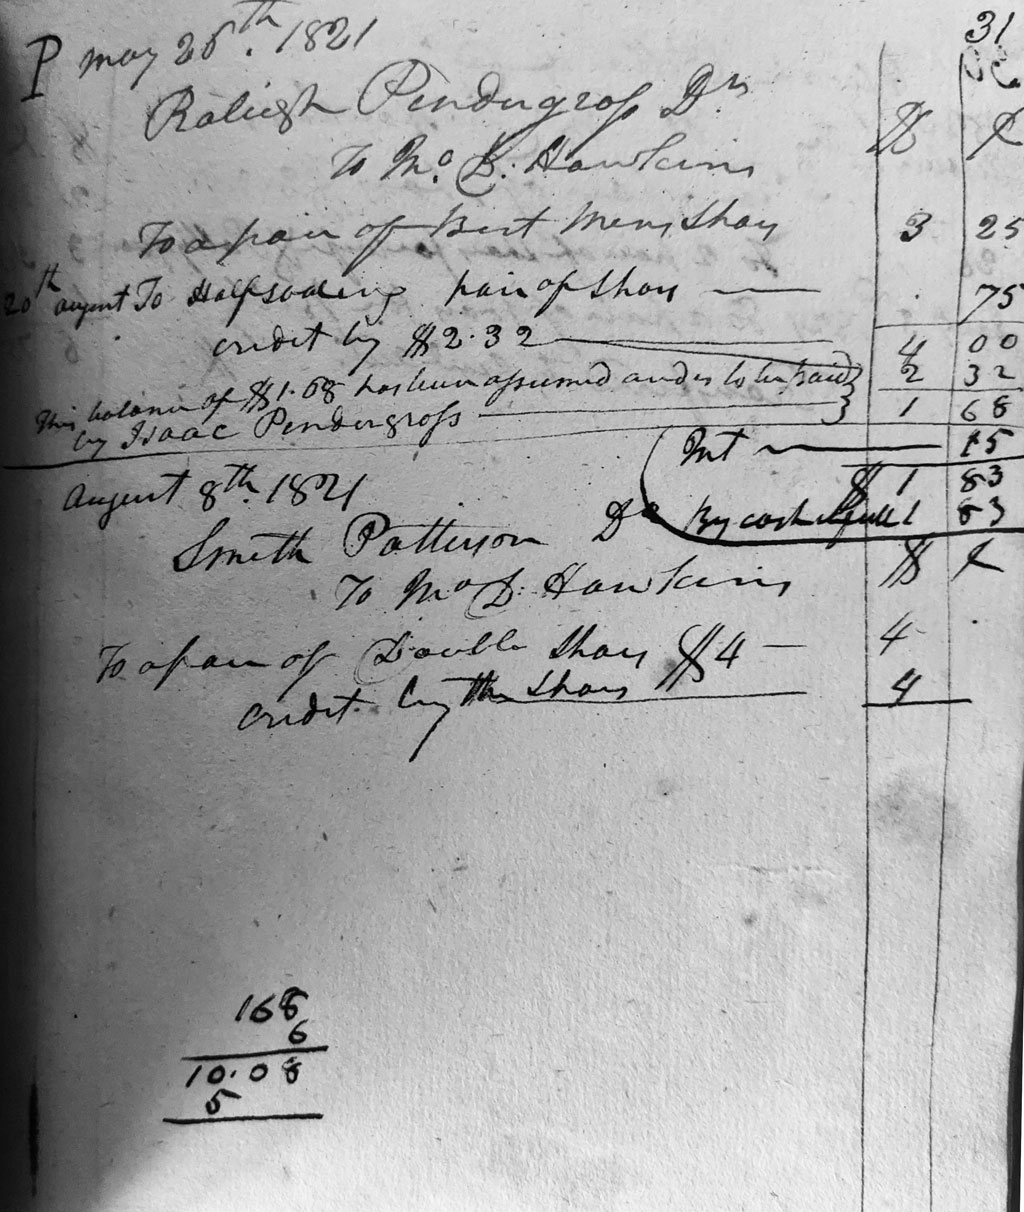 31
P May 26th. 1821
Raliegh Pendergrass Dr
To Mo. D. Hawkins
$ ¢
To a pair of Best Mens Shoes 3 25
20th august To Halfsoaling pair of Shoes — . 75
4 00
credit by $2.32 — 2 32
This balance of $1.68 has been assumed and is to be paid
by Isaac Pendergrass — 1 68
Int — 15
$ 1 83
By cash in full 1 83
August 8th. 1821
Smith Patterson Dr
To Mo D. Hawkins $ ¢
To a pair of Double Shoes $4 — 4
credit by the Shoes — 4
168
6
10.08
5